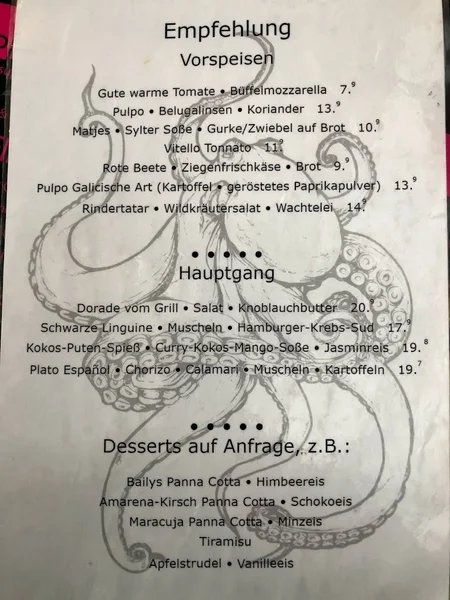 Empfehlung
Vorspeisen
Gute warme Tomate • Büffelmozzarella 7.9
Pulpo • Belugalinsen • Koriander 13.9
Matjes • Sylter Soße • Gurke/Zwiebel auf Brot 10.9
Vitello Tonnato 11.9
Rote Beete • Ziegenfrischkäse • Brot 9.9
Pulpo Galicische Art (Kartoffel • geröstetes Paprikapulver) 13.9
Rindertatar • Wildkräutersalat • Wachtelei 14.9
• • • • •
Hauptgang
Dorade vom Grill • Salat • Knoblauchbutter 20.9
Schwarze Linguine • Muscheln • Hamburger-Krebs-Sud 17.9
Kokos-Puten-Spieß • Curry-Kokos-Mango-Soße • Jasminreis 19.8
Plato Español • Chorizo • Calamari • Muscheln • Kartoffeln 19.7
• • • • •
Desserts auf Anfrage, z.B.:
Bailys Panna Cotta • Himbeereis
Amarena-Kirsch Panna Cotta • Schokoeis
Maracuja Panna Cotta • Minzeis
Tiramisu
Apfelstrudel • Vanilleeis